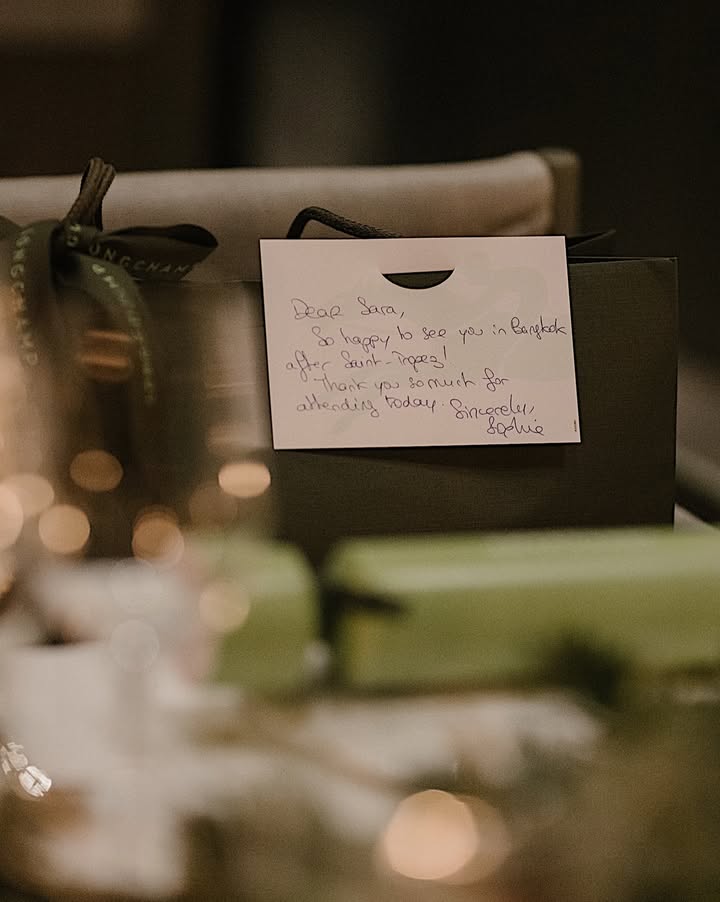 LONGCHAMP
LONGCHAMP
Dear Sara,
So happy to see you in Bangkok
after Saint-Tropez!
Thank you so much for
attending today. Sincerely,
Sophie